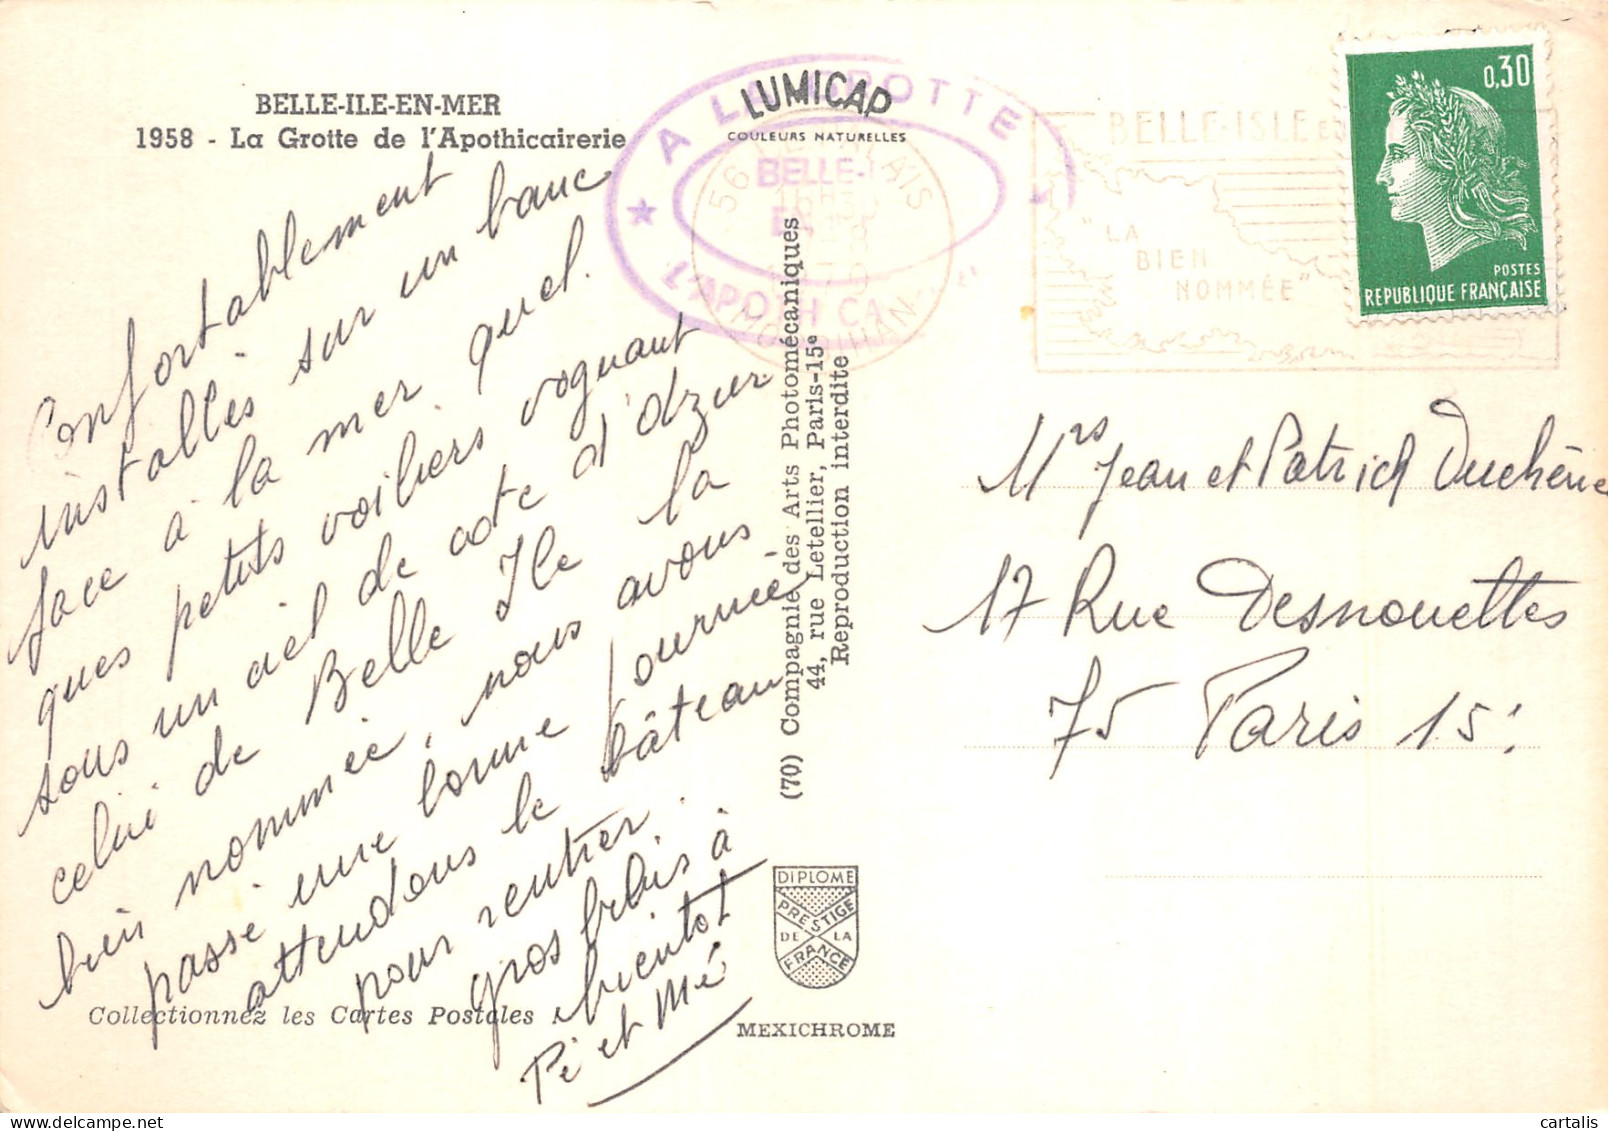 BELLE-ILE-EN-MER
1958 - La Grotte de l'Apothicairerie
Confortablement
installés sur un banc
face à la mer quel.
ques petits voiliers voguant
sous un ciel de cote d'dzur
celui de Belle Ile la
bien nommée, nous avons
passé une bonne journée
attendons le bâteau
pour rentrer.
gros bibis à
bientot
Pi et Mé
Collectionnez les Cartes Postales
LUMICAP
COULEURS NATURELLES
★ A LA GROTTE
BELLE-I
EN
L'APOTHICA
56 LE PALAIS
1970
MORBIHAN
(70) Compagnie des Arts Photomécaniques
44, rue Letellier, Paris-15e
Reproduction interdite
DIPLOME
PRESTIGE
DE LA
FRANCE
MEXICHROME
BELLE-ISLE en
"LA
BIEN
NOMMÉE"
0,30
POSTES
REPUBLIQUE FRANÇAISE
Mrs Jean et Patrick Duchêne
17 Rue Desnouettes
75 Paris 15
cartalis